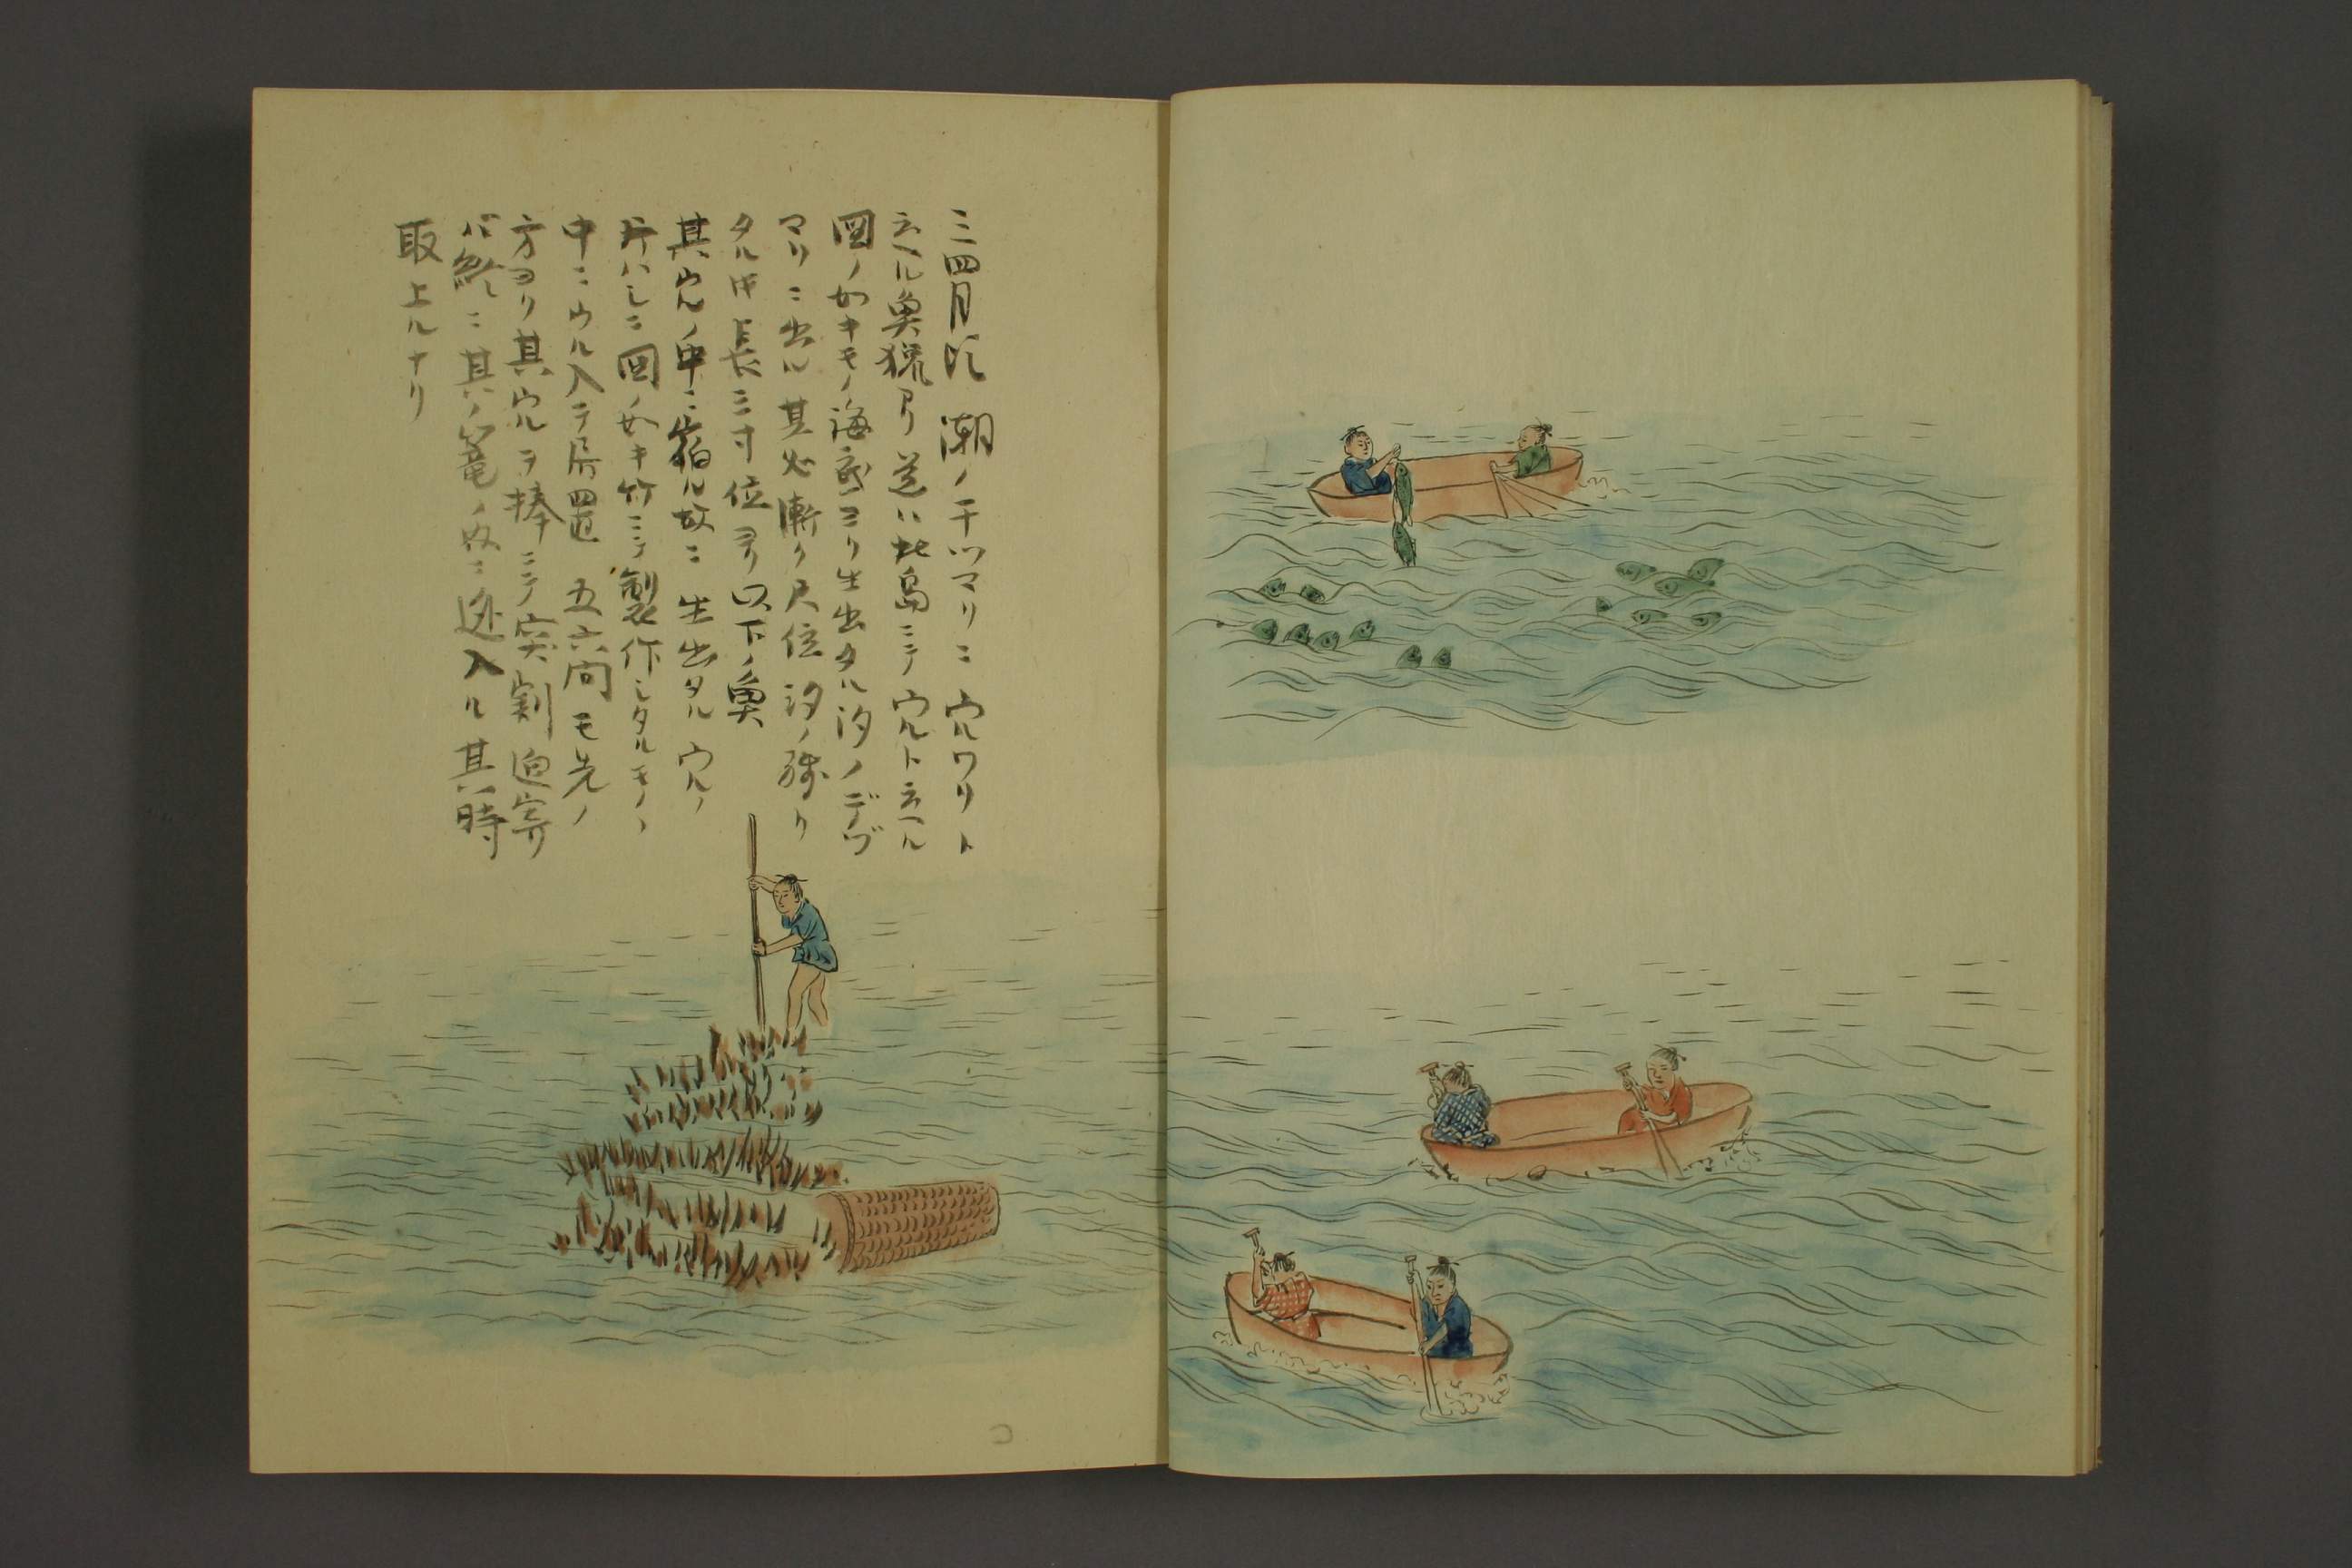 三四月頃 潮ノ干ツマリニ 穴ワリト
云ヘル魚猟アリ 並ハ此島ニテ 穴ト云ヘル
図ノ如キモノ海底ヨリ生出タル汐ノデヅ
マリニ出ル其比漸ク尺位 汐ノ残リ
タル中長三寸位ヨリ以下ノ魚
其穴ノ中ニ宿ル故ニ 生出タル 穴ノ
片ハシニ図ノ如キ竹ニテ製作シタルモノヽ
中ニウル入テ居置 五六間モ先ノ
方ヨリ其穴ヲ捧ニテ突割 迫寄
バ終ニ其ノ篭ノ内ニ逃入ル 其時
取上ルナリ